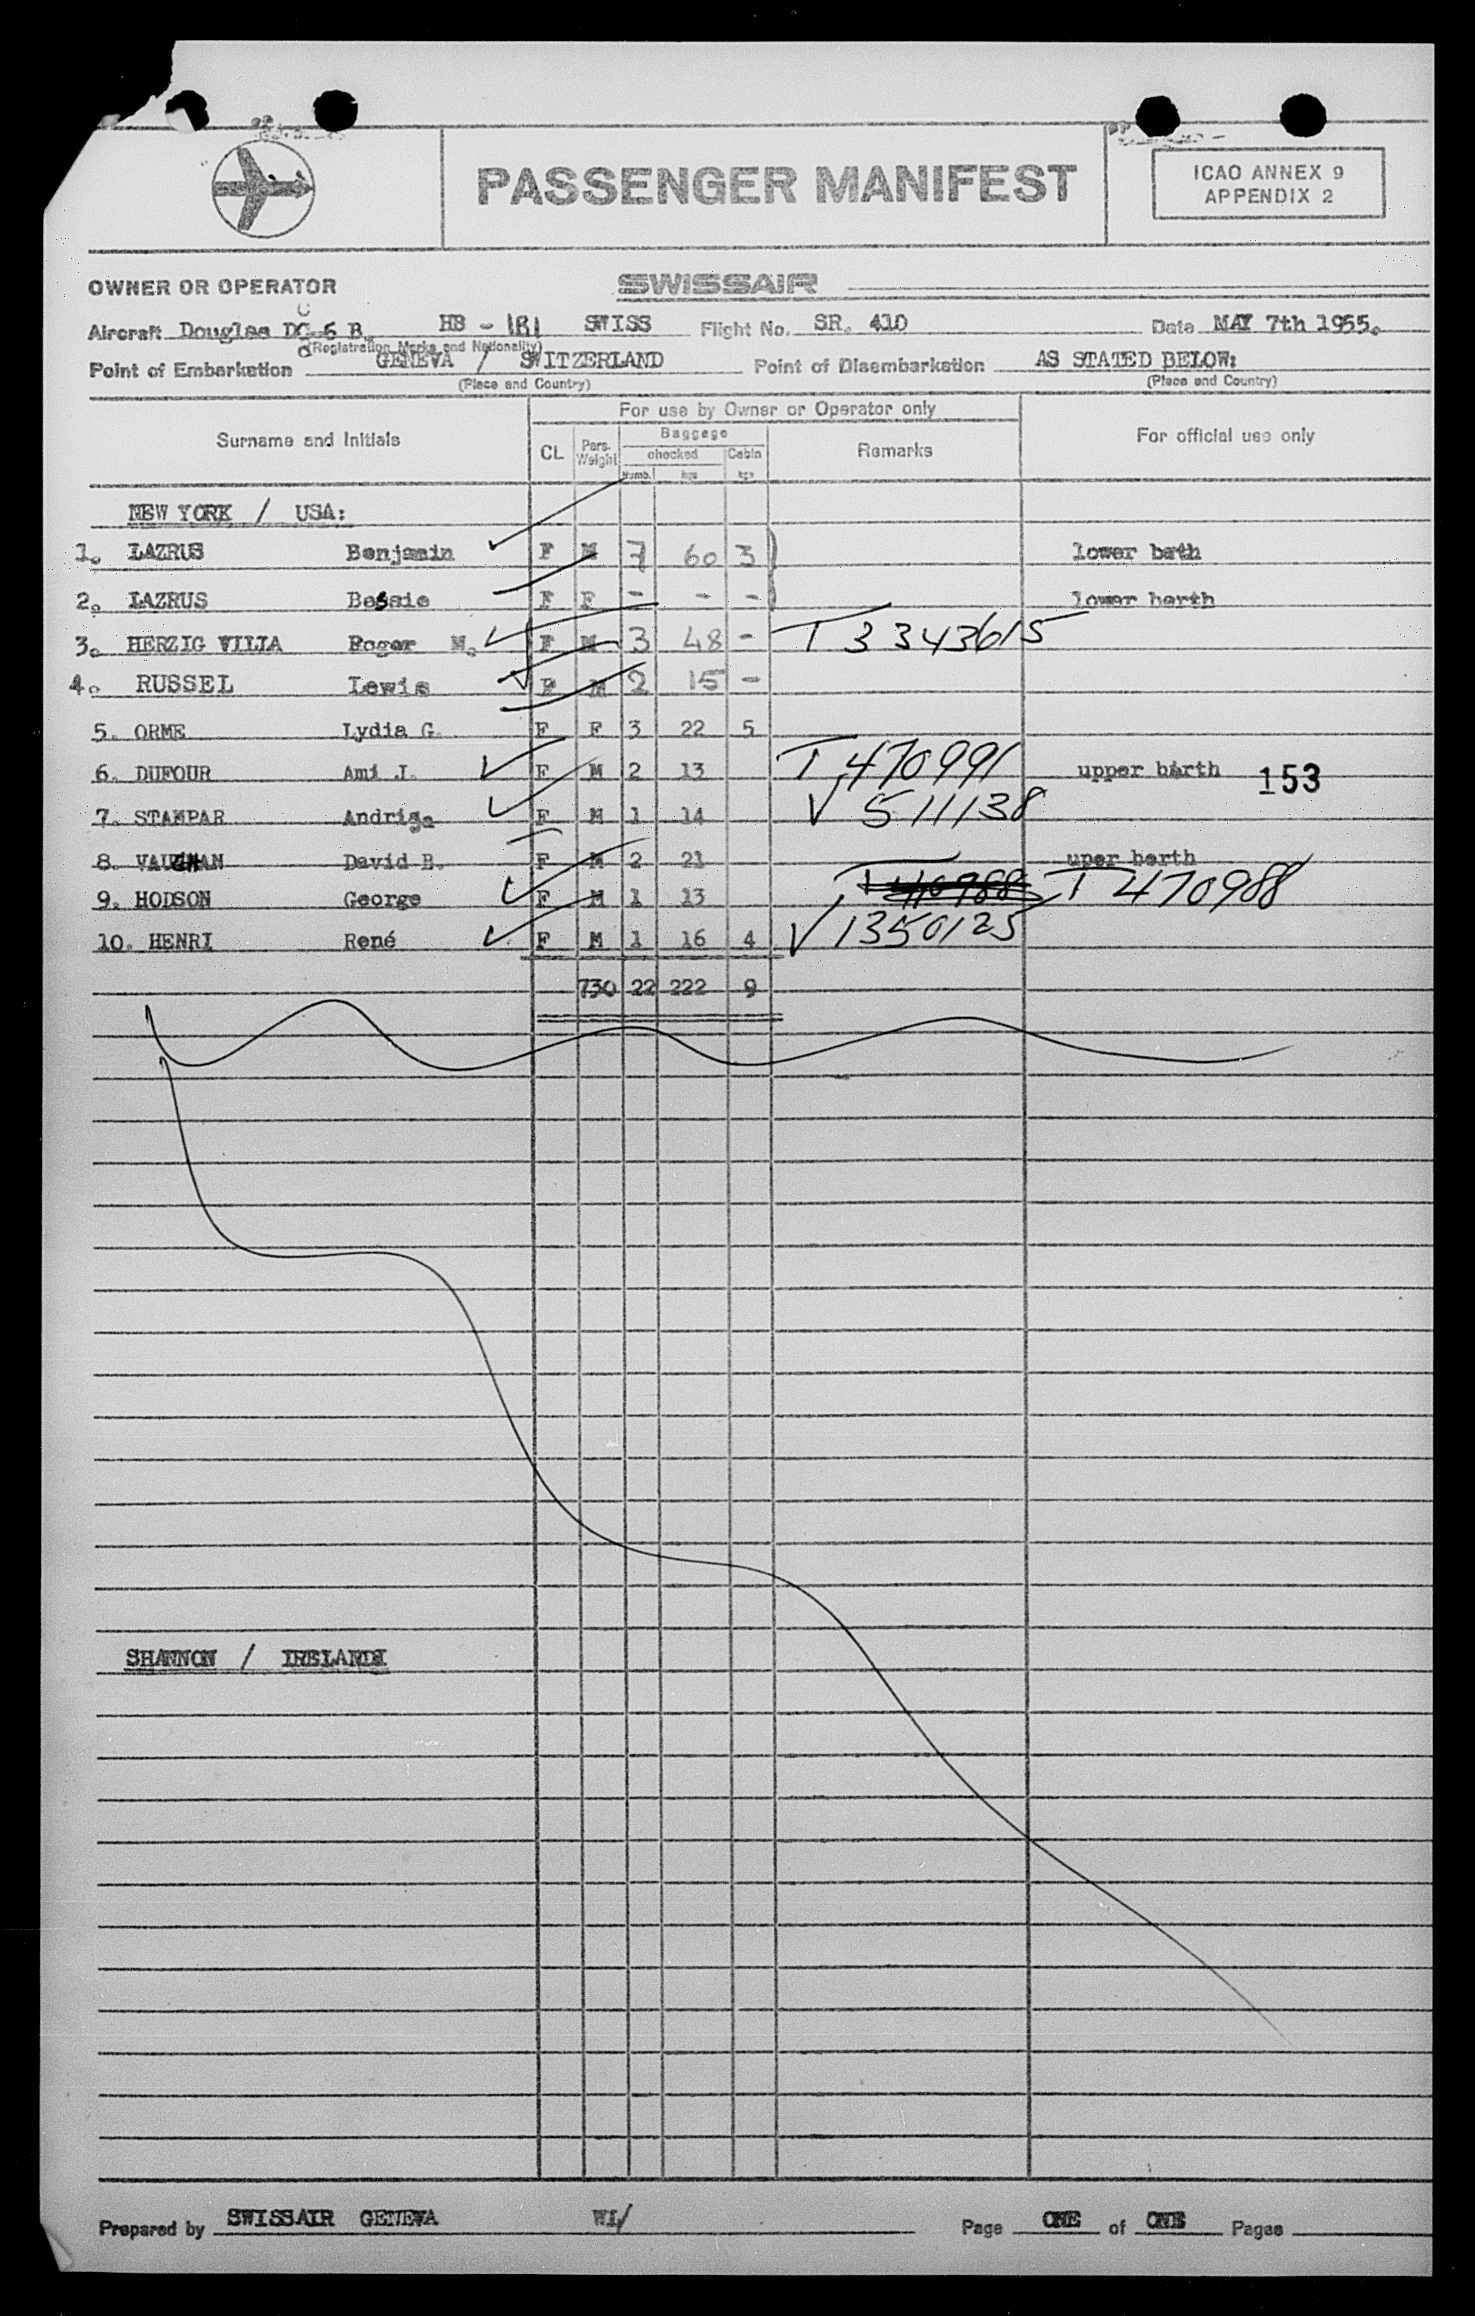 PASSENGER MANIFEST
ICAO ANNEX 9
APPENDIX 2
OWNER OR OPERATOR SWISSAIR
Aircraft Douglas DC-6 B. HB - IBI SWISS Flight No. SR. 410 Date MAY 7th 1955.
(Registration Marks and Nationality)
Point of Embarkation GENEVA / SWITZERLAND Point of Disembarkation AS STATED BELOW:
(Place and Country) (Place and Country)
For use by Owner or Operator only
Surname and Initials CL Pers. Weight Baggage Remarks For official use only
checked Cabin
Numb. kgs kgs
NEW YORK / USA:
1. LAZRUS Benjamin F M 7 60 3 lower bath
2. LAZRUS Bessie F F - - - lower berth
3. HERZIG VILLA Roger M. F M 3 48 - T 3343615
4. RUSSEL Lewis F M 2 15 -
5. ORME Lydia G. F F 3 22 5
6. DUFOUR Ami J. F M 2 13 T 470991 upper barth 153
7. STAMPAR Andriga F M 1 14 V 511138
8. VAUGHAN David B. F M 2 21 uper berth
9. HODSON George F M 1 13 T 470988 T 470988
10. HENRI René F M 1 16 4 V 1350125
730 22 222 9
SHANNON / IRELAND
Prepared by SWISSAIR GENEVA WL/ Page ONE of ONE Pages